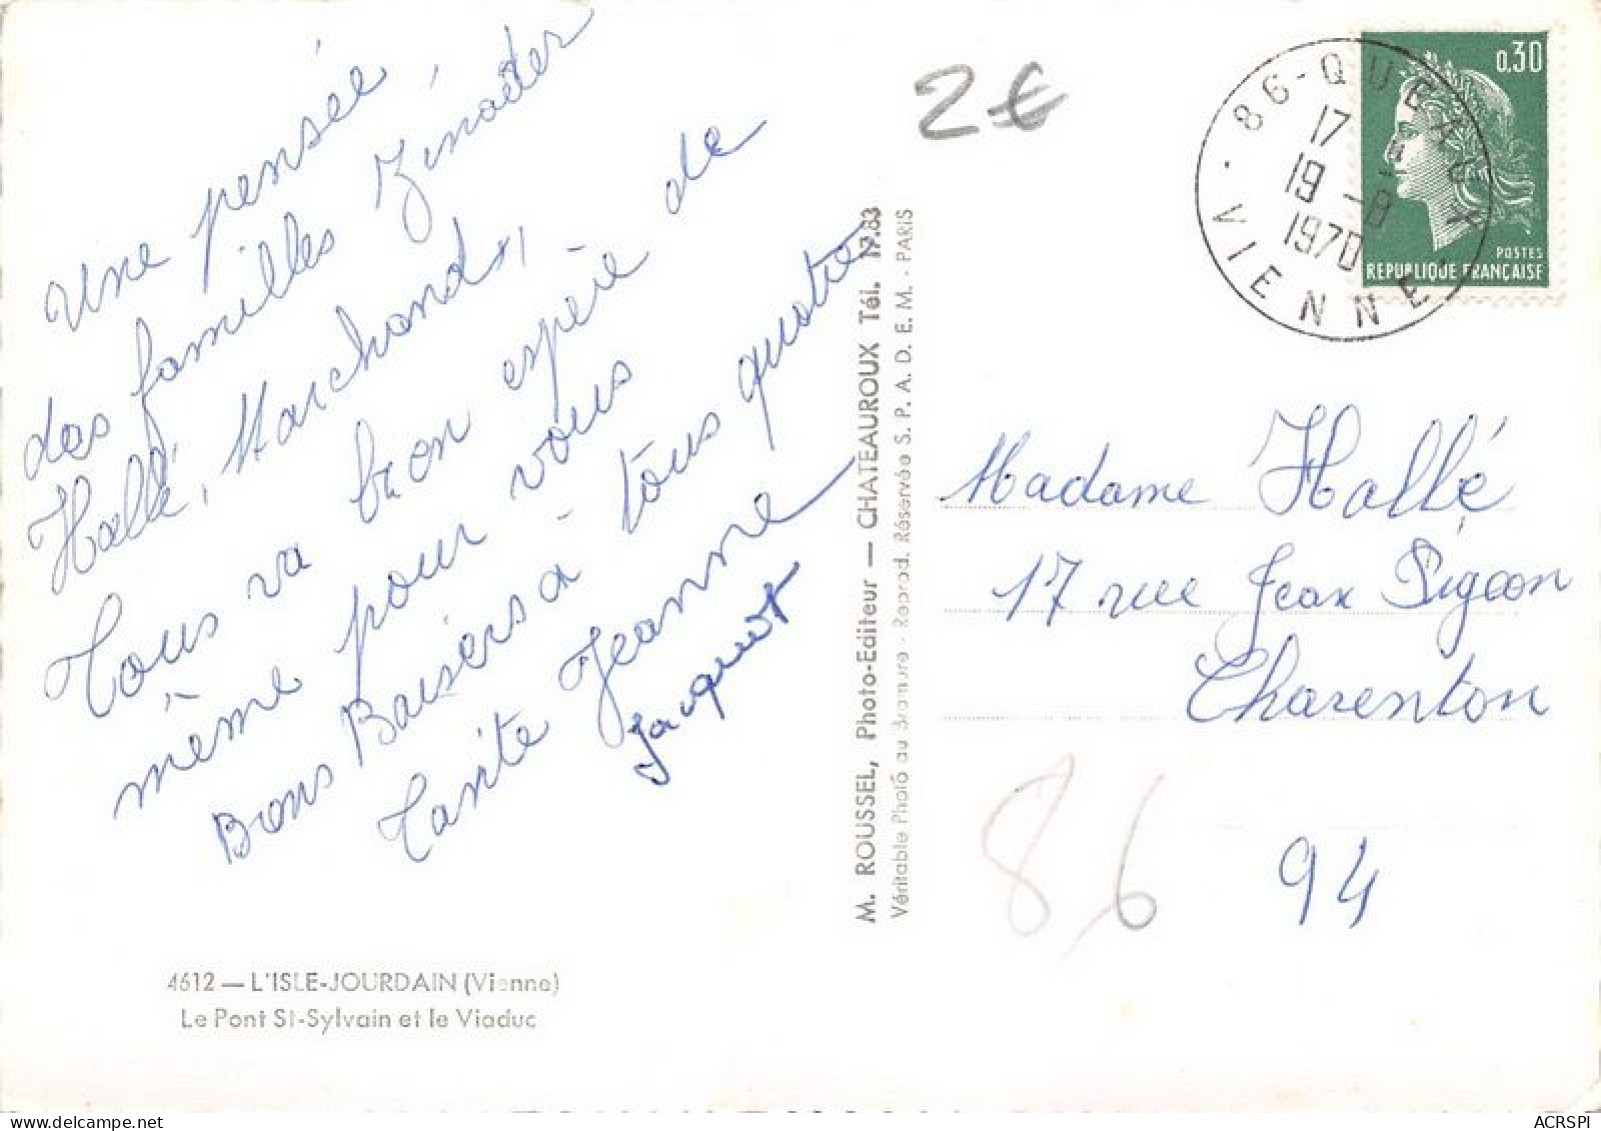 Une pensée
des familles Zinader,
Hallé, Marchand,
Tous va bien espère de
même pour vous
Bons Baisers à tous quatre
Tante Jeanne
Jacquet
2€
86-QUEAUX
17 H
19 -8
1970
VIENNE
0,30
POSTES
REPUBLIQUE FRANÇAISE
M. ROUSSEL, Photo-Editeur — CHATEAUROUX Tél. 17.83
Véritable Photo au Bromure - Reprod. Réservée S. P. A. D. E. M. - PARIS
Madame Hallé
17 rue Jean Pigeon
Charenton
94
86
4612 — L'ISLE-JOURDAIN (Vienne)
Le Pont St-Sylvain et le Viaduc
ACRSPI